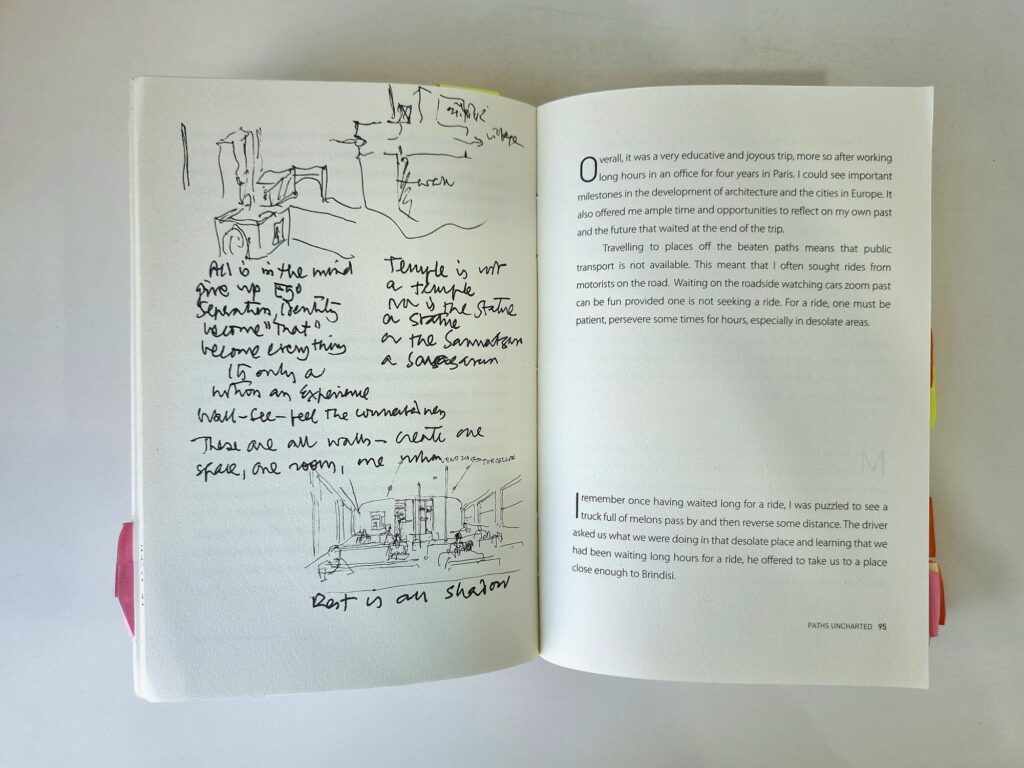 village
All is in the mind
give up Ego
Separation, identity
become "That"
become everything
Its only a
notion an Experience
Wall-See-feel the connectedness
These are all walls- create one
space, one room, one notion
Temple is not
a temple
nor is the Statue
a Statue
or the
a
TORCELLO
Rest is all shadow
Overall, it was a very educative and joyous trip, more so after working
long hours in an office for four years in Paris. I could see important
milestones in the development of architecture and the cities in Europe. It
also offered me ample time and opportunities to reflect on my own past
and the future that waited at the end of the trip.
Travelling to places off the beaten paths means that public
transport is not available. This meant that I often sought rides from
motorists on the road. Waiting on the roadside watching cars zoom past
can be fun provided one is not seeking a ride. For a ride, one must be
patient, persevere some times for hours, especially in desolate areas.
I remember once having waited long for a ride, I was puzzled to see a
truck full of melons pass by and then reverse some distance. The driver
asked us what we were doing in that desolate place and learning that we
had been waiting long hours for a ride, he offered to take us to a place
close enough to Brindisi.
PATHS UNCHARTED 95